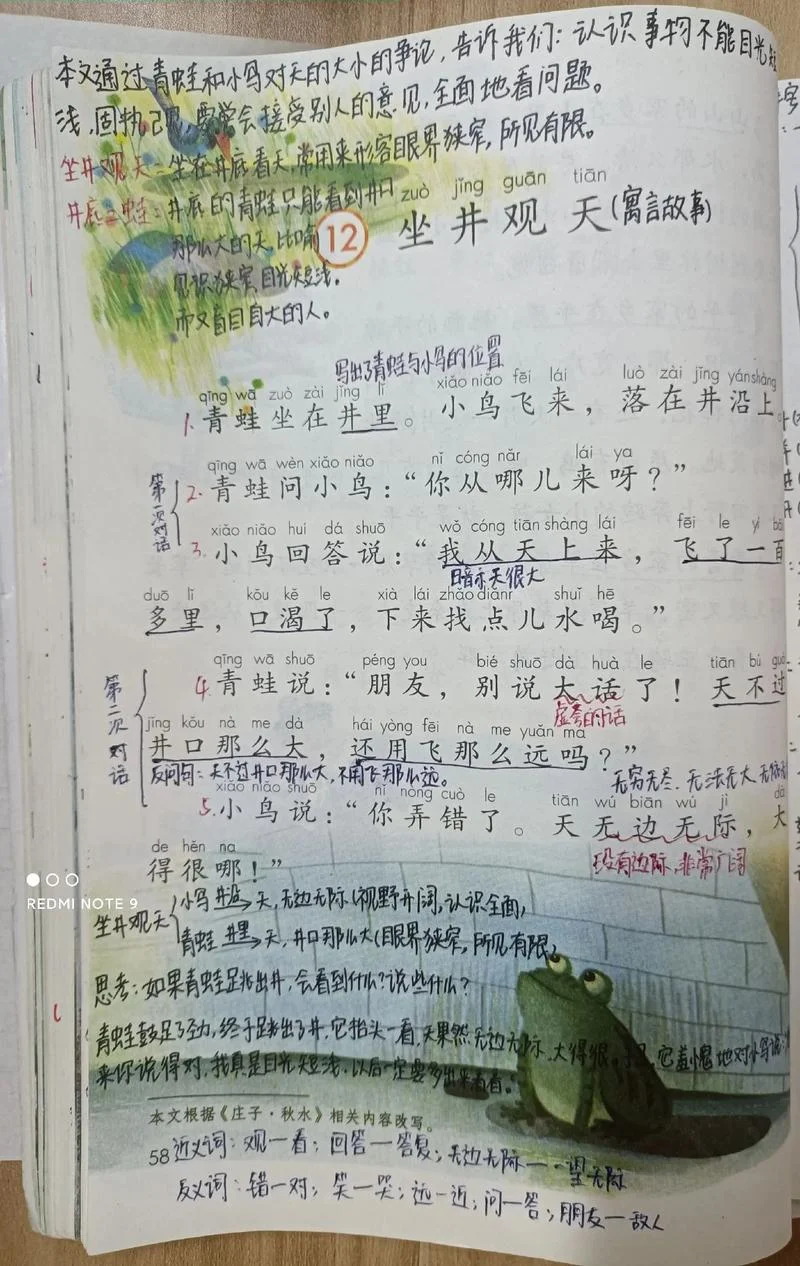 本文通过青蛙和小鸟对天的大小的争论，告诉我们：认识事物不能目光短
浅，固执己见，要学会接受别人的意见，全面地看问题。
坐井观天：坐在井底看天，常用来形容眼界狭窄，所见有限。
井底之蛙：井底的青蛙只能看到井口
那么大的天，比喻
见识狭窄，目光短浅，
而又盲目自大的人。
zuò jǐng guān tiān
12 坐井观天(寓言故事)
写出了青蛙与小鸟的位置
qīng wā zuò zài jǐng lǐ xiǎo niǎo fēi lái luò zài jǐng yán shàng
1. 青蛙坐在井里。小鸟飞来，落在井沿上。
qīng wā wèn xiǎo niǎo nǐ cóng nǎr lái ya
第一次对话
2. 青蛙问小鸟：“你从哪儿来呀？”
xiǎo niǎo huí dá shuō wǒ cóng tiān shàng lái fēi le yì bǎi
3. 小鸟回答说：“我从天上来，飞了一百
暗示天很大
duō lǐ kǒu kě le xià lái zhǎo diǎnr shuǐ hē
多里，口渴了，下来找点儿水喝。”
qīng wā shuō péng you bié shuō dà huà le tiān bú guò
第二次对话
4. 青蛙说：“朋友，别说大话了！天不过
虚夸的话
jǐng kǒu nà me dà hái yòng fēi nà me yuǎn ma
井口那么大，还用飞那么远吗？”
反问句：天不过井口那么大，不用飞那么远。
无穷无尽、无法无大、
xiǎo niǎo shuō nǐ nòng cuò le tiān wú biān wú jì dà
5. 小鸟说：“你弄错了。天无边无际，大
没有边际，非常广阔
de hěn na
得很哪！”
REDMI NOTE 9
坐井观天
小鸟 井沿→天，无边无际(视野开阔，认识全面)
青蛙 井里→天，井口那么大(眼界狭窄，所见有限)
思考：如果青蛙跳出井，会看到什么？说些什么？
青蛙鼓足了劲，终于跳出了井，它抬头一看，天果然无边无际，大得很。它羞愧地对小鸟说：
来你说得对，我真是目光短浅，以后一定要多出来看看。”
本文根据《庄子·秋水》相关内容改写。
58 近义词：观—看；回答—答复；无边无际—一望无际
反义词：错—对；笑—哭；远—近；问—答；朋友—敌人